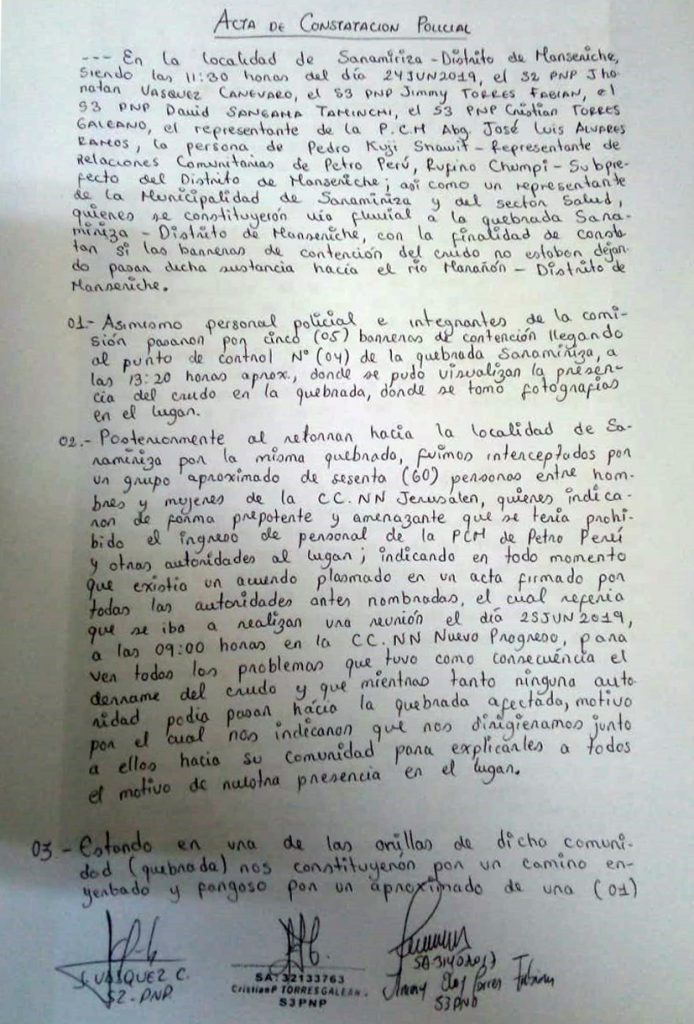 ACTA DE CONSTATACION POLICIAL
--- En la localidad de Sanamiriza - Distrito de Manseriche,
siendo las 11:30 horas del día 24JUN2019, el S2 PNP Jho
natan VASQUEZ CANEVARO, el S3 PNP Jimmy TORRES FABIAN, el
S3 PNP David SANGAMA TAMINCHI, el S3 PNP Cristian TORRES
GALEANO, el representante de la P.C.M Abg. José Luis ALVARES
RAMOS, la persona de Pedro Kuji Shawit - Representante de
Relaciones Comunitarias de Petro Perú, Rufino Chumpi - Subpre-
fecto del Distrito de Manseriche; así como un representante
de la Municipalidad de Saramiriza y del sector Salud,
quienes se constituyerón vía fluvial a la quebrada Sara-
miriza - Distrito de Manseriche, con la finalidad de consta
tar si las barreras de contención del crudo no estaban dejan-
do pasar dicha sustancia hacia el río Marañón - Distrito de
Manseriche.
01.- Asimismo personal policial e integrantes de la comi-
sión pasaron por cinco (05) barreras de contención llegando
al punto de control N° (04) de la quebrada Saramiriza, a
las 13:20 horas aprox., donde se pudo visualizar la presen-
cia del crudo en la quebrada, donde se tomó fotografias
en el lugar.
02.- Posteriormente al retornar hacia la localidad de Sa-
ramiriza por la misma quebrada, fuimos interceptados por
un grupo aproximado de sesenta (60) personas entre hom-
bres y mujeres de la CC.NN Jerusalen, quienes indica-
ron de forma prepotente y amenazante que se tenia prohi-
bido el ingreso de personal de la PCM de Petro Perú
y otras autoridades al lugar; indicando en todo momento
que existia un acuerdo plasmado en un acta firmado por
todas las autoridades antes nombradas, el cual referia
que se iba a realizar una reunión el día 25JUN2019,
a las 09:00 horas en la CC.NN Nuevo Progreso, para
ver todos los problemas que tuvo como consecuencia el
derrame del crudo y que mientras tanto ninguna auto-
ridad podia pasar hacia la quebrada afectada, motivo
por el cual nos indicaron que nos dirigieramos junto
a ellos hacia su comunidad para explicarles a todos
el motivo de nuestra presencia en el lugar.
03.- Estando en una de las orillas de dicha comuni-
dad (quebrada) nos constituyerón por un camino en-
yerbado y pangoso por un aproximado de una (01)
J. VASQUEZ C.
S2-PNP
SA: 32133763
Cristian P TORRES GALEAN.
S3PNP
Jimmy Torres Fabian
S3PNP